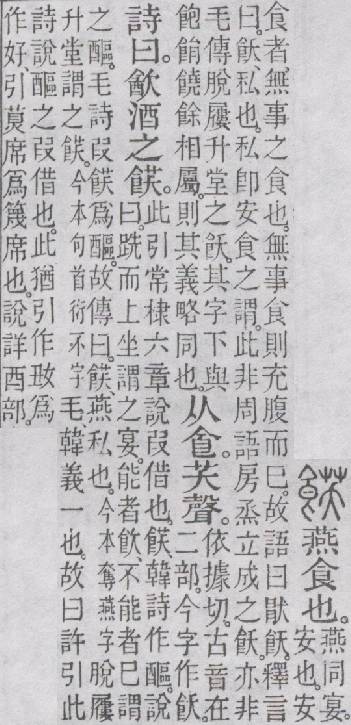 燕食也。燕同宴。安也。安
食者無事之食也。無事食則充腹而巳。故語曰猒飫。釋言
曰。飫、私也。私卽安食之謂。此非周語房烝立成之飫。亦非
毛傳脫屨升堂之飫。其字下與
飽饒餘相屬。則其義略同也。从食芺聲。依據切。古音在二部。今字作飫。
詩曰。㱃酒之。此引常棣六章說叚借也。韓詩作醧。說
曰。跣而上坐謂之宴。能者㱃、不能者巳謂
之醧。毛詩叚爲醧。故傳曰。燕私也。今本奪燕字脫屨
升堂謂之。今本句首衍不字毛韓義一也。故曰許引此
詩說醧之叚借也。此猶引作㺿爲
作好、引莫席爲篾席也。說詳酉部。